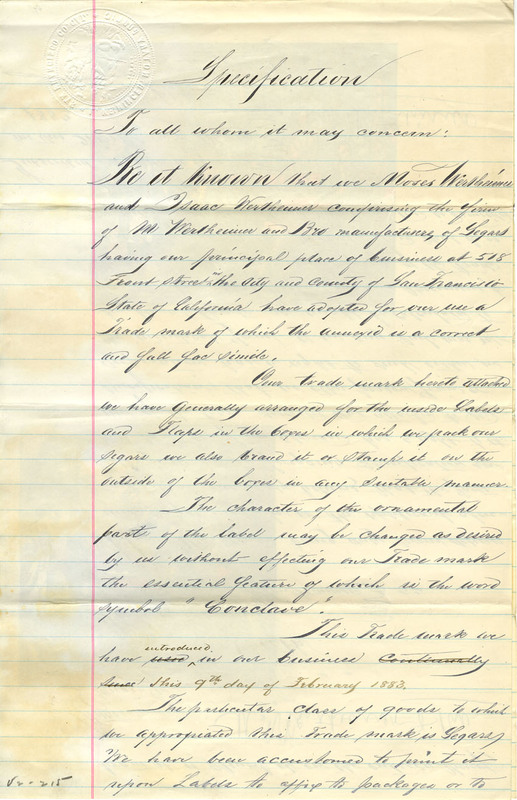 Specification
To all whom it may concern:
Be it Known that we Moses Wertheimer
and Isaac Wertheimer comprising the firm
of M Wertheimer and Bro manufacturers of Segars
having our principal place of business at 518
Front street in the City and County of San Francisco
State of California have adopted for our use a
Trade mark of which the annexed is a correct
and full fac simile.
Our trade mark hereto attached
we have generally arranged for the inside Labels
and Flaps in the boxes in which we pack our
segars we also brand it or stamp it on the
outside of the boxes in any suitable manner.
The character of the ornamental
part of the label may be changed as desired
by us without effecting our Trade mark
the essential feature of which is the word
symbol "Conclave".
This Trade mark we
have used introduced in our business continually
since this 9th day of February 1883.
The particular class of goods to which
we appropriated this Trade mark is Segars,
We have been accustomed to print it
upon Labels to affix to packages or to